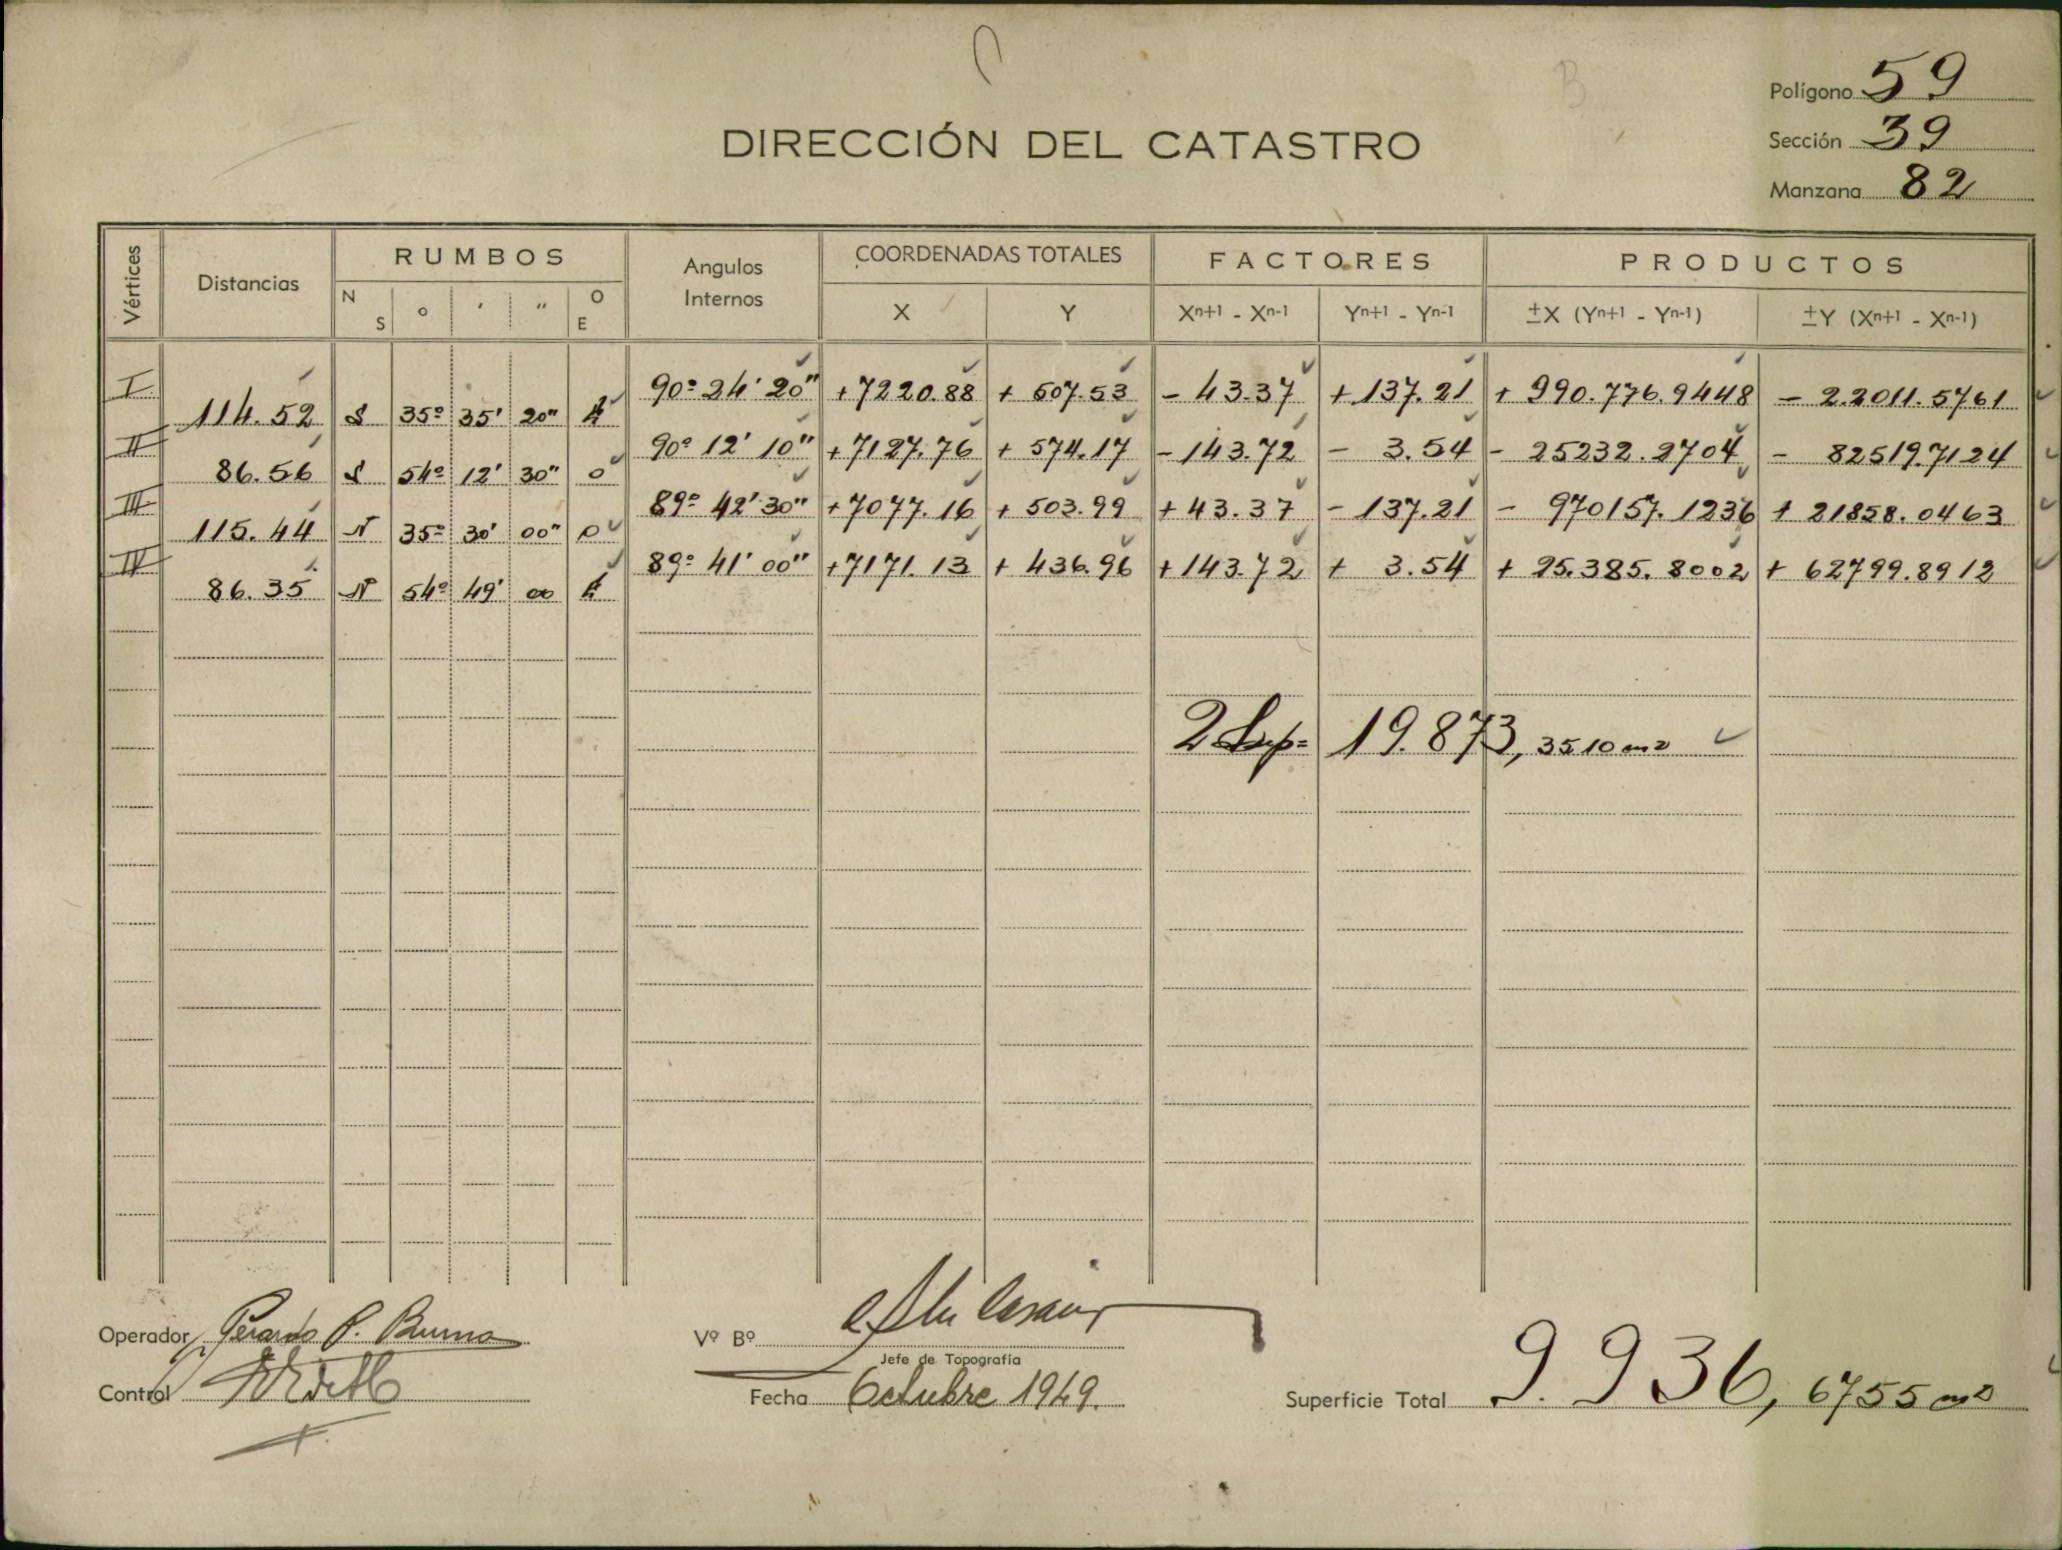 Polígono 59
DIRECCIÓN DEL CATASTRO
Sección 39
Manzana 82
Vértices Distancias RUMBOS Angulos Internos COORDENADAS TOTALES FACTORES PRODUCTOS
N S ° ' " O E X Y Xn+1 - Xn-1 Yn+1 - Yn-1 ±X (Yn+1 - Yn-1) ±Y (Xn+1 - Xn-1)
I 90º 24' 20" +7220.88 + 507.53 - 43.37 + 137.21 + 990.776.9448 - 2.2011.5761
114.52 S 35º 35' 20" E
II 90º 12' 10" +7127.76 + 574.17 - 143.72 - 3.54 - 25232.2704 - 82519.7124
86.56 S 54º 12' 30" O
III 89º 42' 30" +7077.16 + 503.99 + 43.37 - 137.21 - 970157.1236 + 21858.0463
115.44 N 35º 30' 00" O
IV 89º 41' 00" +7171.13 + 436.96 + 143.72 + 3.54 + 25.385.8002 + 62799.8912
86.35 N 54º 49' 00 E
2 Sup= 19.873,3510 m2
Operador Gerardo P.
Vº Bº
Jefe de Topografía
Control
Fecha Octubre 1949.
Superficie Total 9.936,6755 m2